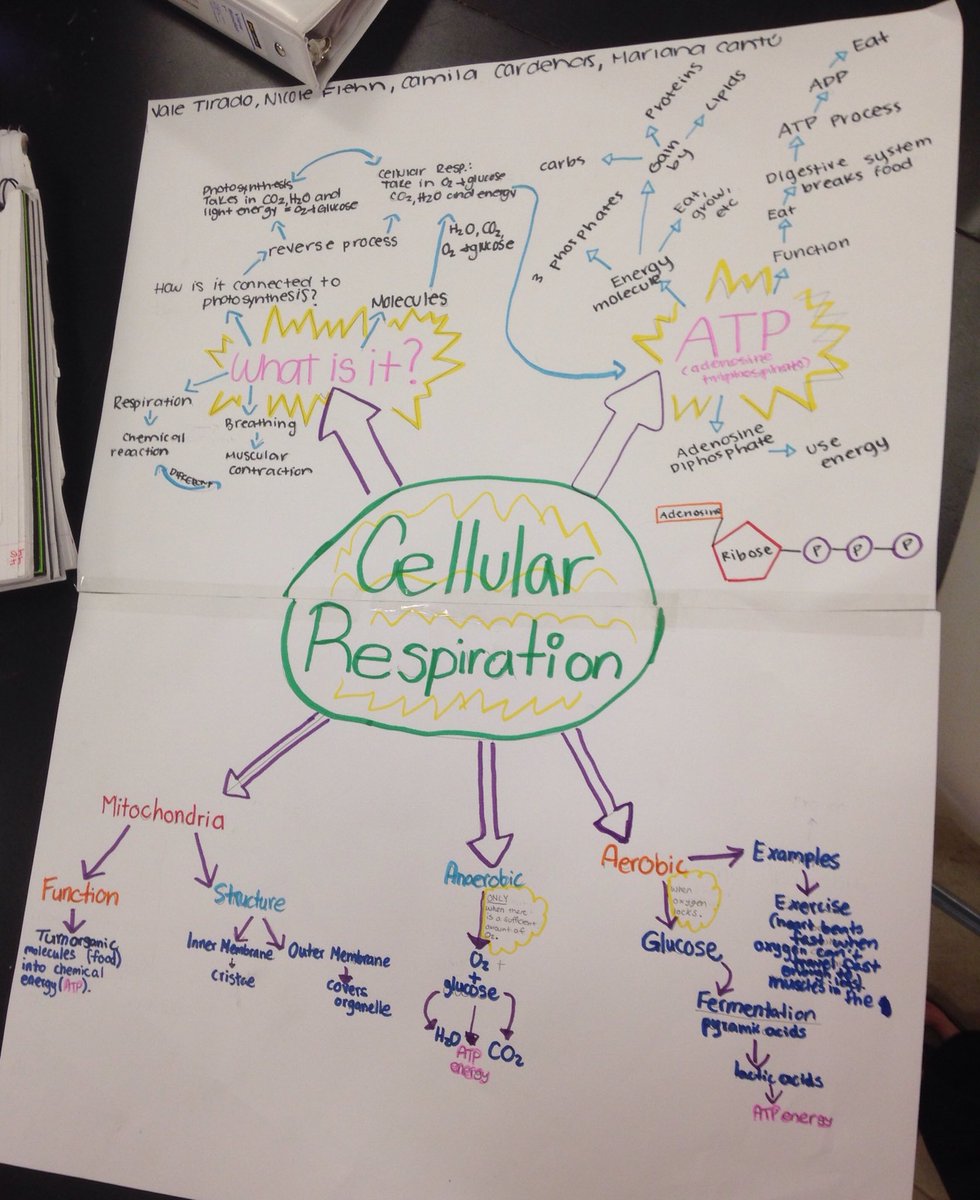 Vale Tirado, Nicole Flehn, Camila Cardenas, Mariana Cantú
Photosynthesis
Takes in CO2, H2O and
light energy = O2 + Glucose
Cellular Resp.:
take in O2 + glucose
CO2, H2O and energy
reverse process
H2O, CO2,
O2 + glucose
How is it connected to
photosynthesis?
Molecules
What is it?
Respiration
Chemical
reaction
DIFFERENT
Breathing
Muscular
contraction
carbs
Proteins
Lipids
Gain
by
3 phosphates
Eat,
grow,
etc
Energy
molecule
Eat
ADP
ATP Process
Digestive system
breaks food
Eat
Function
ATP
(adenosine
triphosphate)
Adenosine
Diphosphate
use
energy
Adenosine
Ribose
P
P
P
Cellular
Respiration
Mitochondria
Function
Turn organic
molecules (food)
into chemical
energy (ATP).
Structure
Inner Membrane
cristae
Outer Membrane
covers
organelle
Anaerobic
ONLY
when there
is a sufficient
amount of
O2.
O2
+
glucose
H2O
ATP
energy
CO2
Aerobic
when
oxygen
lacks.
Glucose
Fermentation
pyramic acids
lactic acids
ATP energy
Examples
Exercise
(heart beats
fast when
oxygen can't
travel fast
enough to
muscles in the